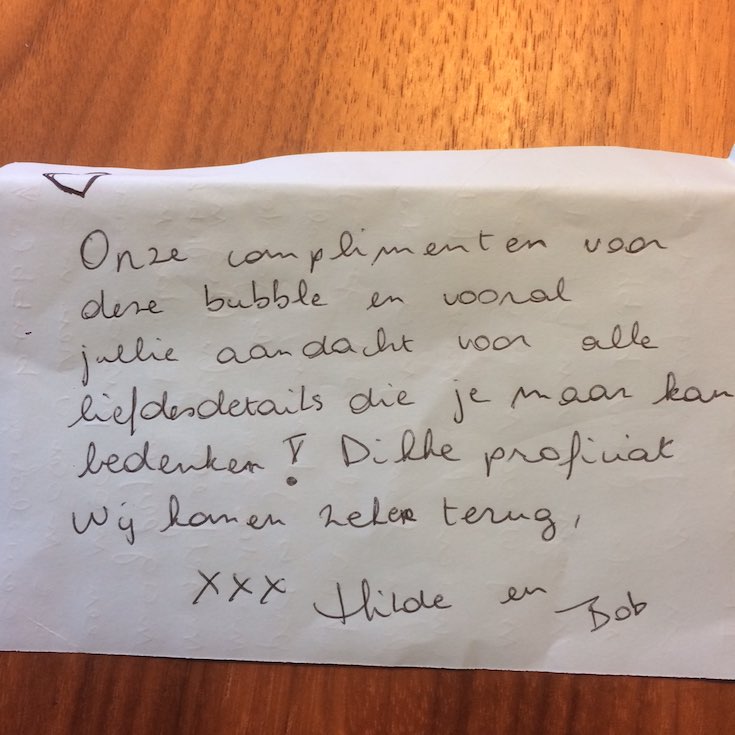 Onze complimenten voor
deze bubble en vooral
jullie aandacht voor alle
liefdesdetails die je maar kan
bedenken! Dikke proficiat
Wij komen zeker terug,
xxx Hilde en Bob